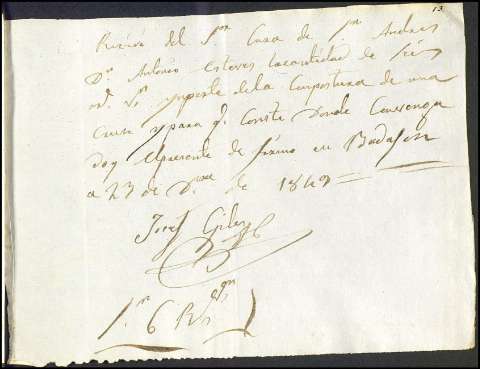 13
Reciví del Sor Cura de Sn Andres
Dn Antonio Esteves la cantidad de seis
rs. Vn ymporte dela Compostura de una
Cruz y para qe Conste Donde Convenga
doy el presente qe firmo en Badajoz
a 23 de Dbre de 1849
Josef Giles
Son 6 Rs Vn